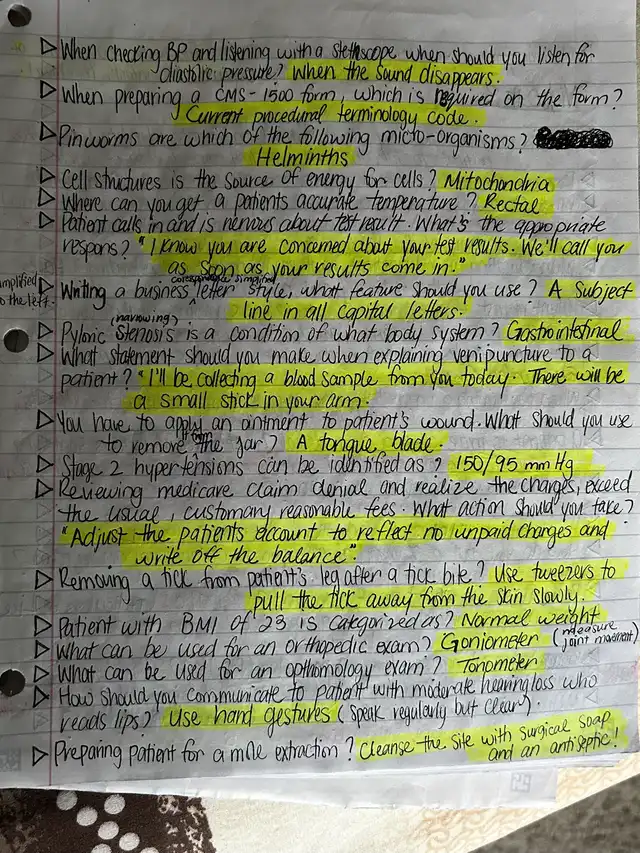 ▷ When checking BP and listening with a stethscope when should you listen for
diastolic pressure? When the sound disappears.
▷ When preparing a CMS-1500 form, which is required on the form?
Current procedural terminology code.
▷ Pinworms are which of the following micro-organisms?
Helminths
▷ Cell structures is the source of energy for cells? Mitochondria
▷ Where can you get a patients accurate temperature? Rectal
▷ Patient calls in and is nervous about test result. What's the appropriate
respons? "I know you are concerned about your test results. We'll call you
as soon as your results come in."
simplified
to the left.
▷ Writing a business letter style, what feature should you use? A Subject
line in all capital letters.
(narrowing)
▷ Pyloric Stenosis is a condition of what body system? Gastrointestinal
▷ What statement should you make when explaining venipuncture to a
patient? "I'll be collecting a blood sample from you today. There will be
a small stick in your arm.
▷ You have to apply an ointment to patient's wound. What should you use
to remove from the jar? A tongue blade.
▷ Stage 2 hypertensions can be identified as? 150/95 mmHg
▷ Reviewing medicare claim denial and realize the charges, exceed
the usual, customary reasonable fees. What action should you take?
"Adjust the patients account to reflect no unpaid charges and
write off the balance".
▷ Removing a tick from patient's leg after a tick bite? Use tweezers to
pull the tick away from the skin slowly.
▷ Patient with BMI of 23 is categorized as? Normal weight
▷ What can be used for an orthopedic exam? Goniometer (measure joint movement)
▷ What can be used for an opthomology exam? Tonometer
▷ How should you communicate to patient with moderate hearing loss who
reads lips? Use hand gestures (speak regularly but clear).
▷ Preparing patient for a mole extraction? Cleanse the site with surgical soap
and an antiseptic!